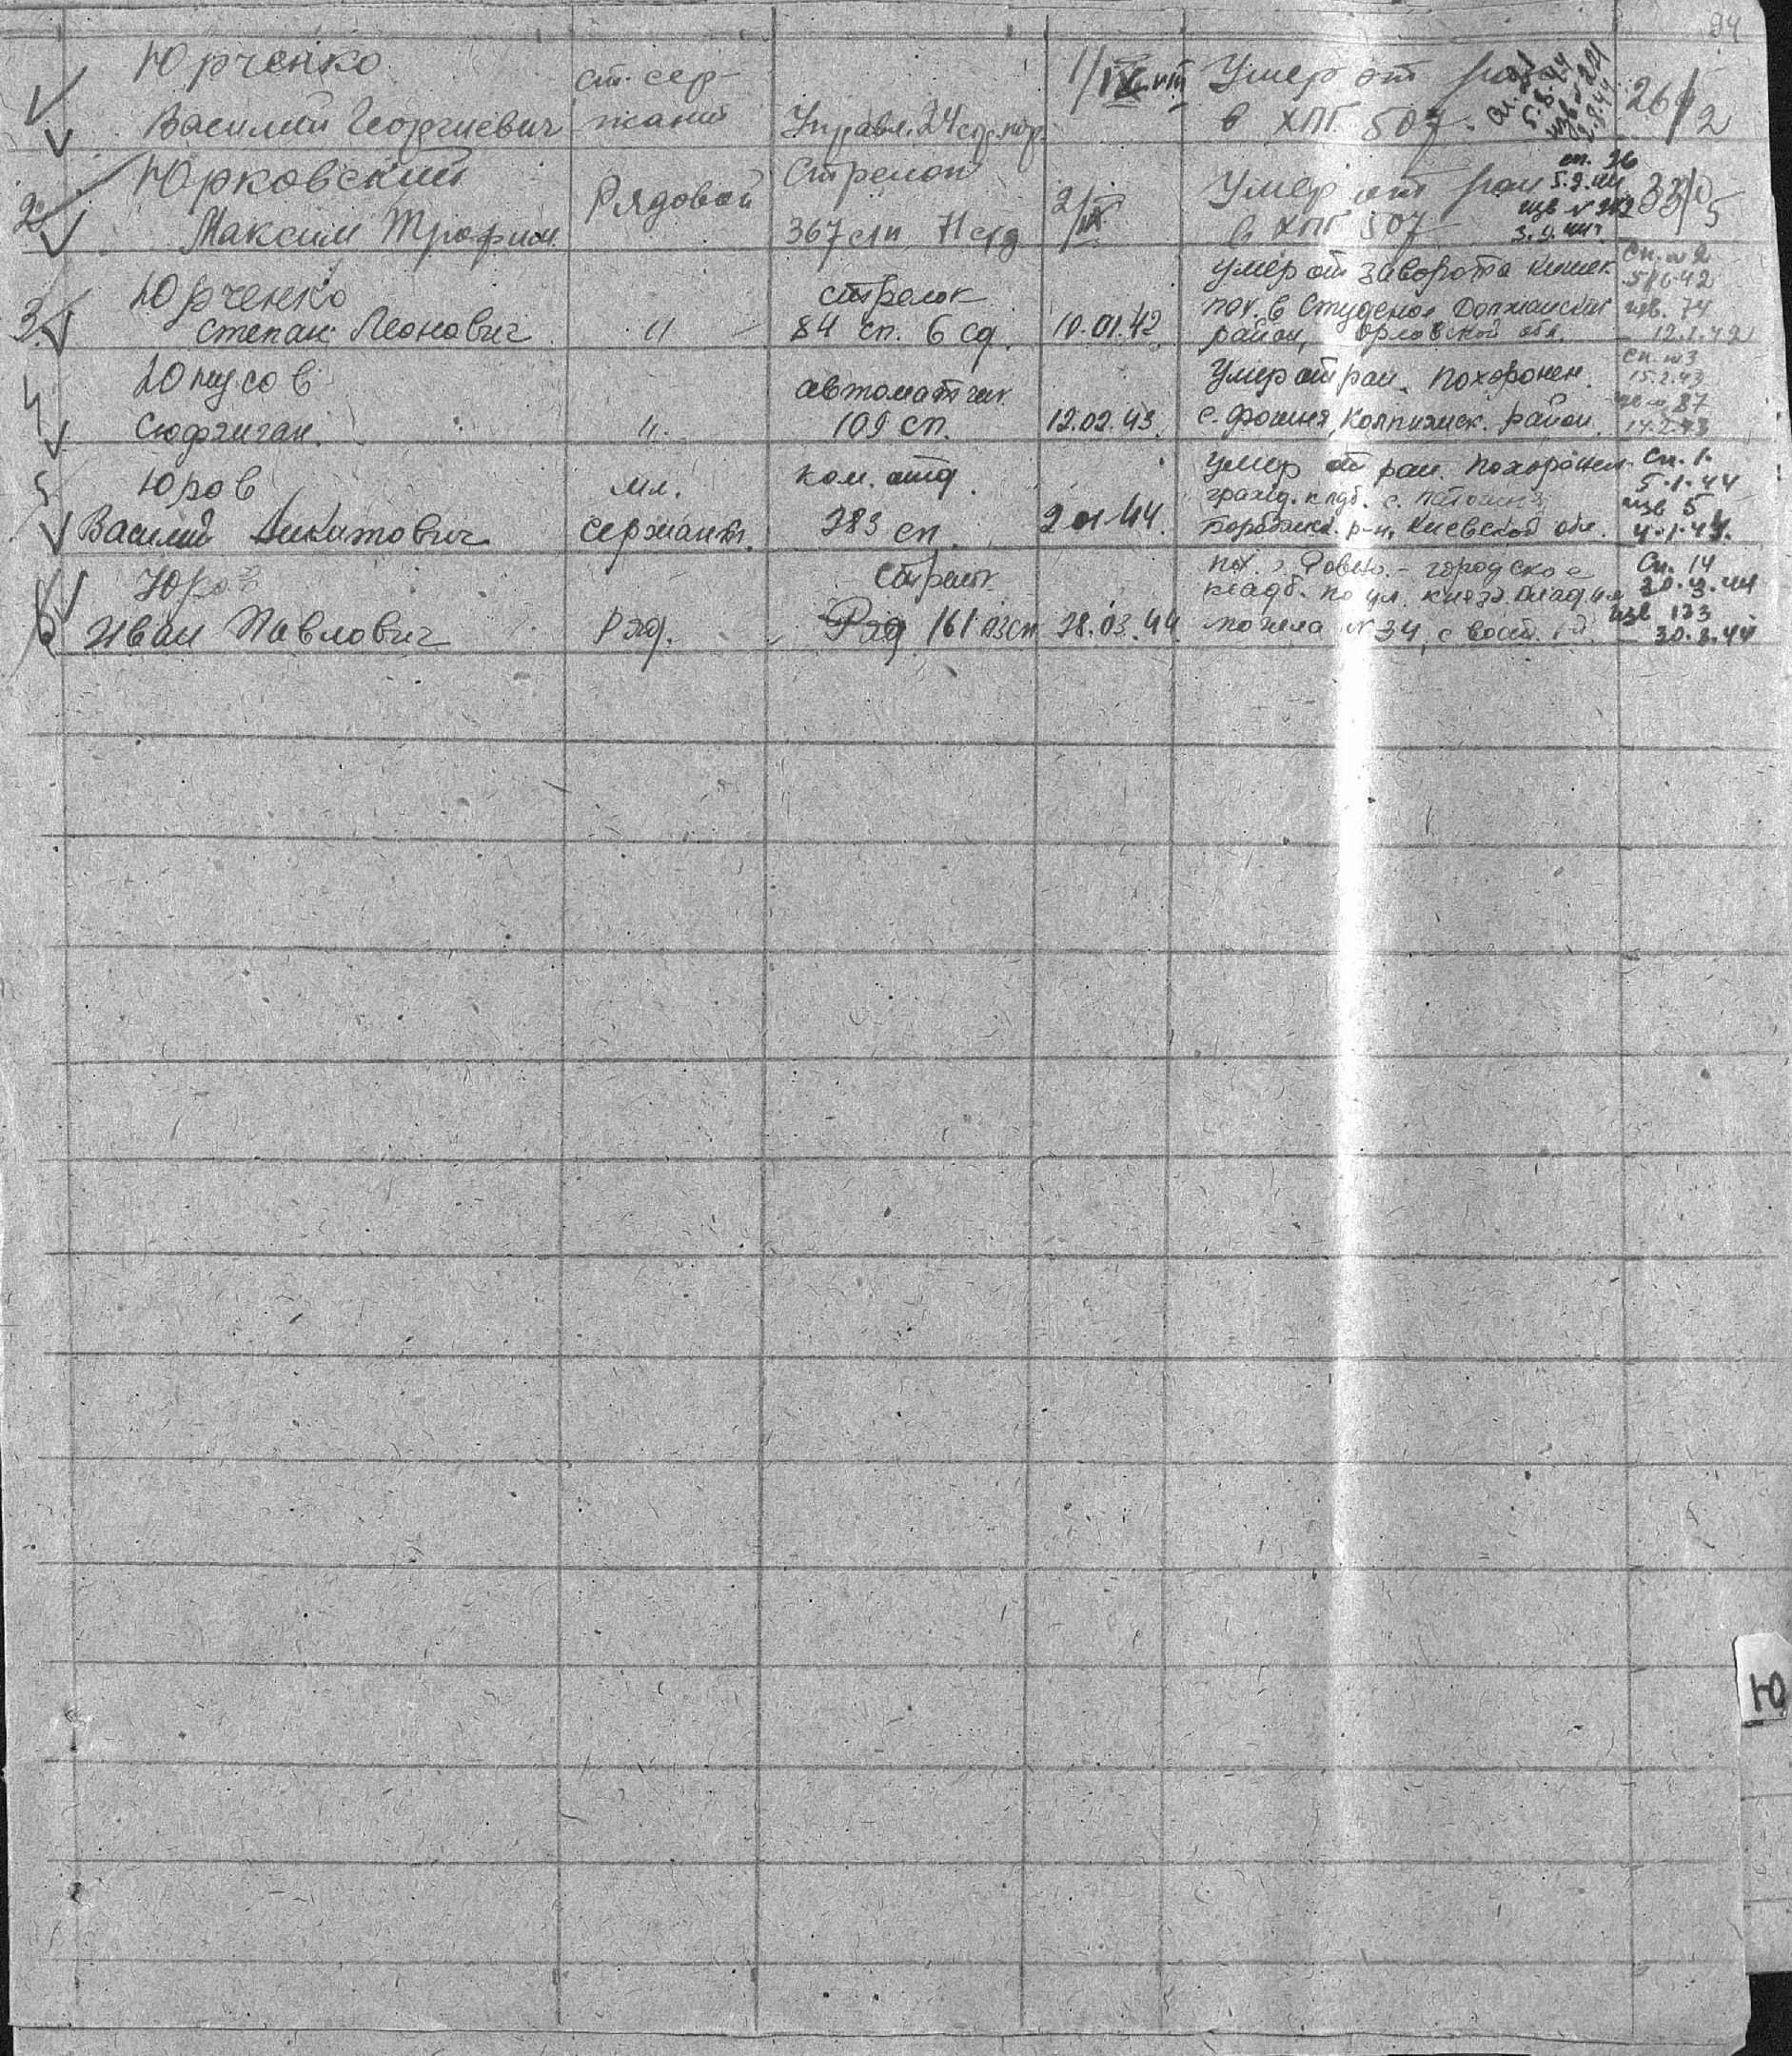 94
Юрченко
Василий Георгиевич
ст. сер-
жант
Управл. 24 стр. кор.
Умер от ран
в ХПГ 507.
5.8.44
264/2
2
Юрковский
Максим Трофим.
Рядовой
Стрелок
367 сп 71 сд
2/IX
Умер от ран
в ХПГ 507
сп. 36
5.9.44
изв №
3.9.44г
3.
Юрченко
Степан Леонович
"
стрелок
84 сп. 6 сд.
10.01.42
умер от заворота кишек
пох. в Студеное Должанский
район, Орловской обл.
Сп. №2
изв. 74
12.1.42
4
Юнусов
Сюфжиган.
"
автоматчик
109 сп.
12.02.43.
Умер от ран. Похоронен.
с. Фошня, Колпнянск. район.
Сп. №3
15.2.43
87
14.2.43
5
Юров
Василий
мл.
сержант.
ком. отд.
283 сп.
2.01.44.
умер от ран. Похоронен
гражд. кладб. с.
р-н, Киевской обл.
Сп. 1.
5.1.44
изв 5
4.1.44.
6
Юров
Иван Павлович
Ряд.
Стрелок
161 азсп
28.03.44
пох. г. Ровно - городское
кладб. по ул. князя Владим
могила №34, с вост.
Сп. 14
изв 133
30.3.44
Ю